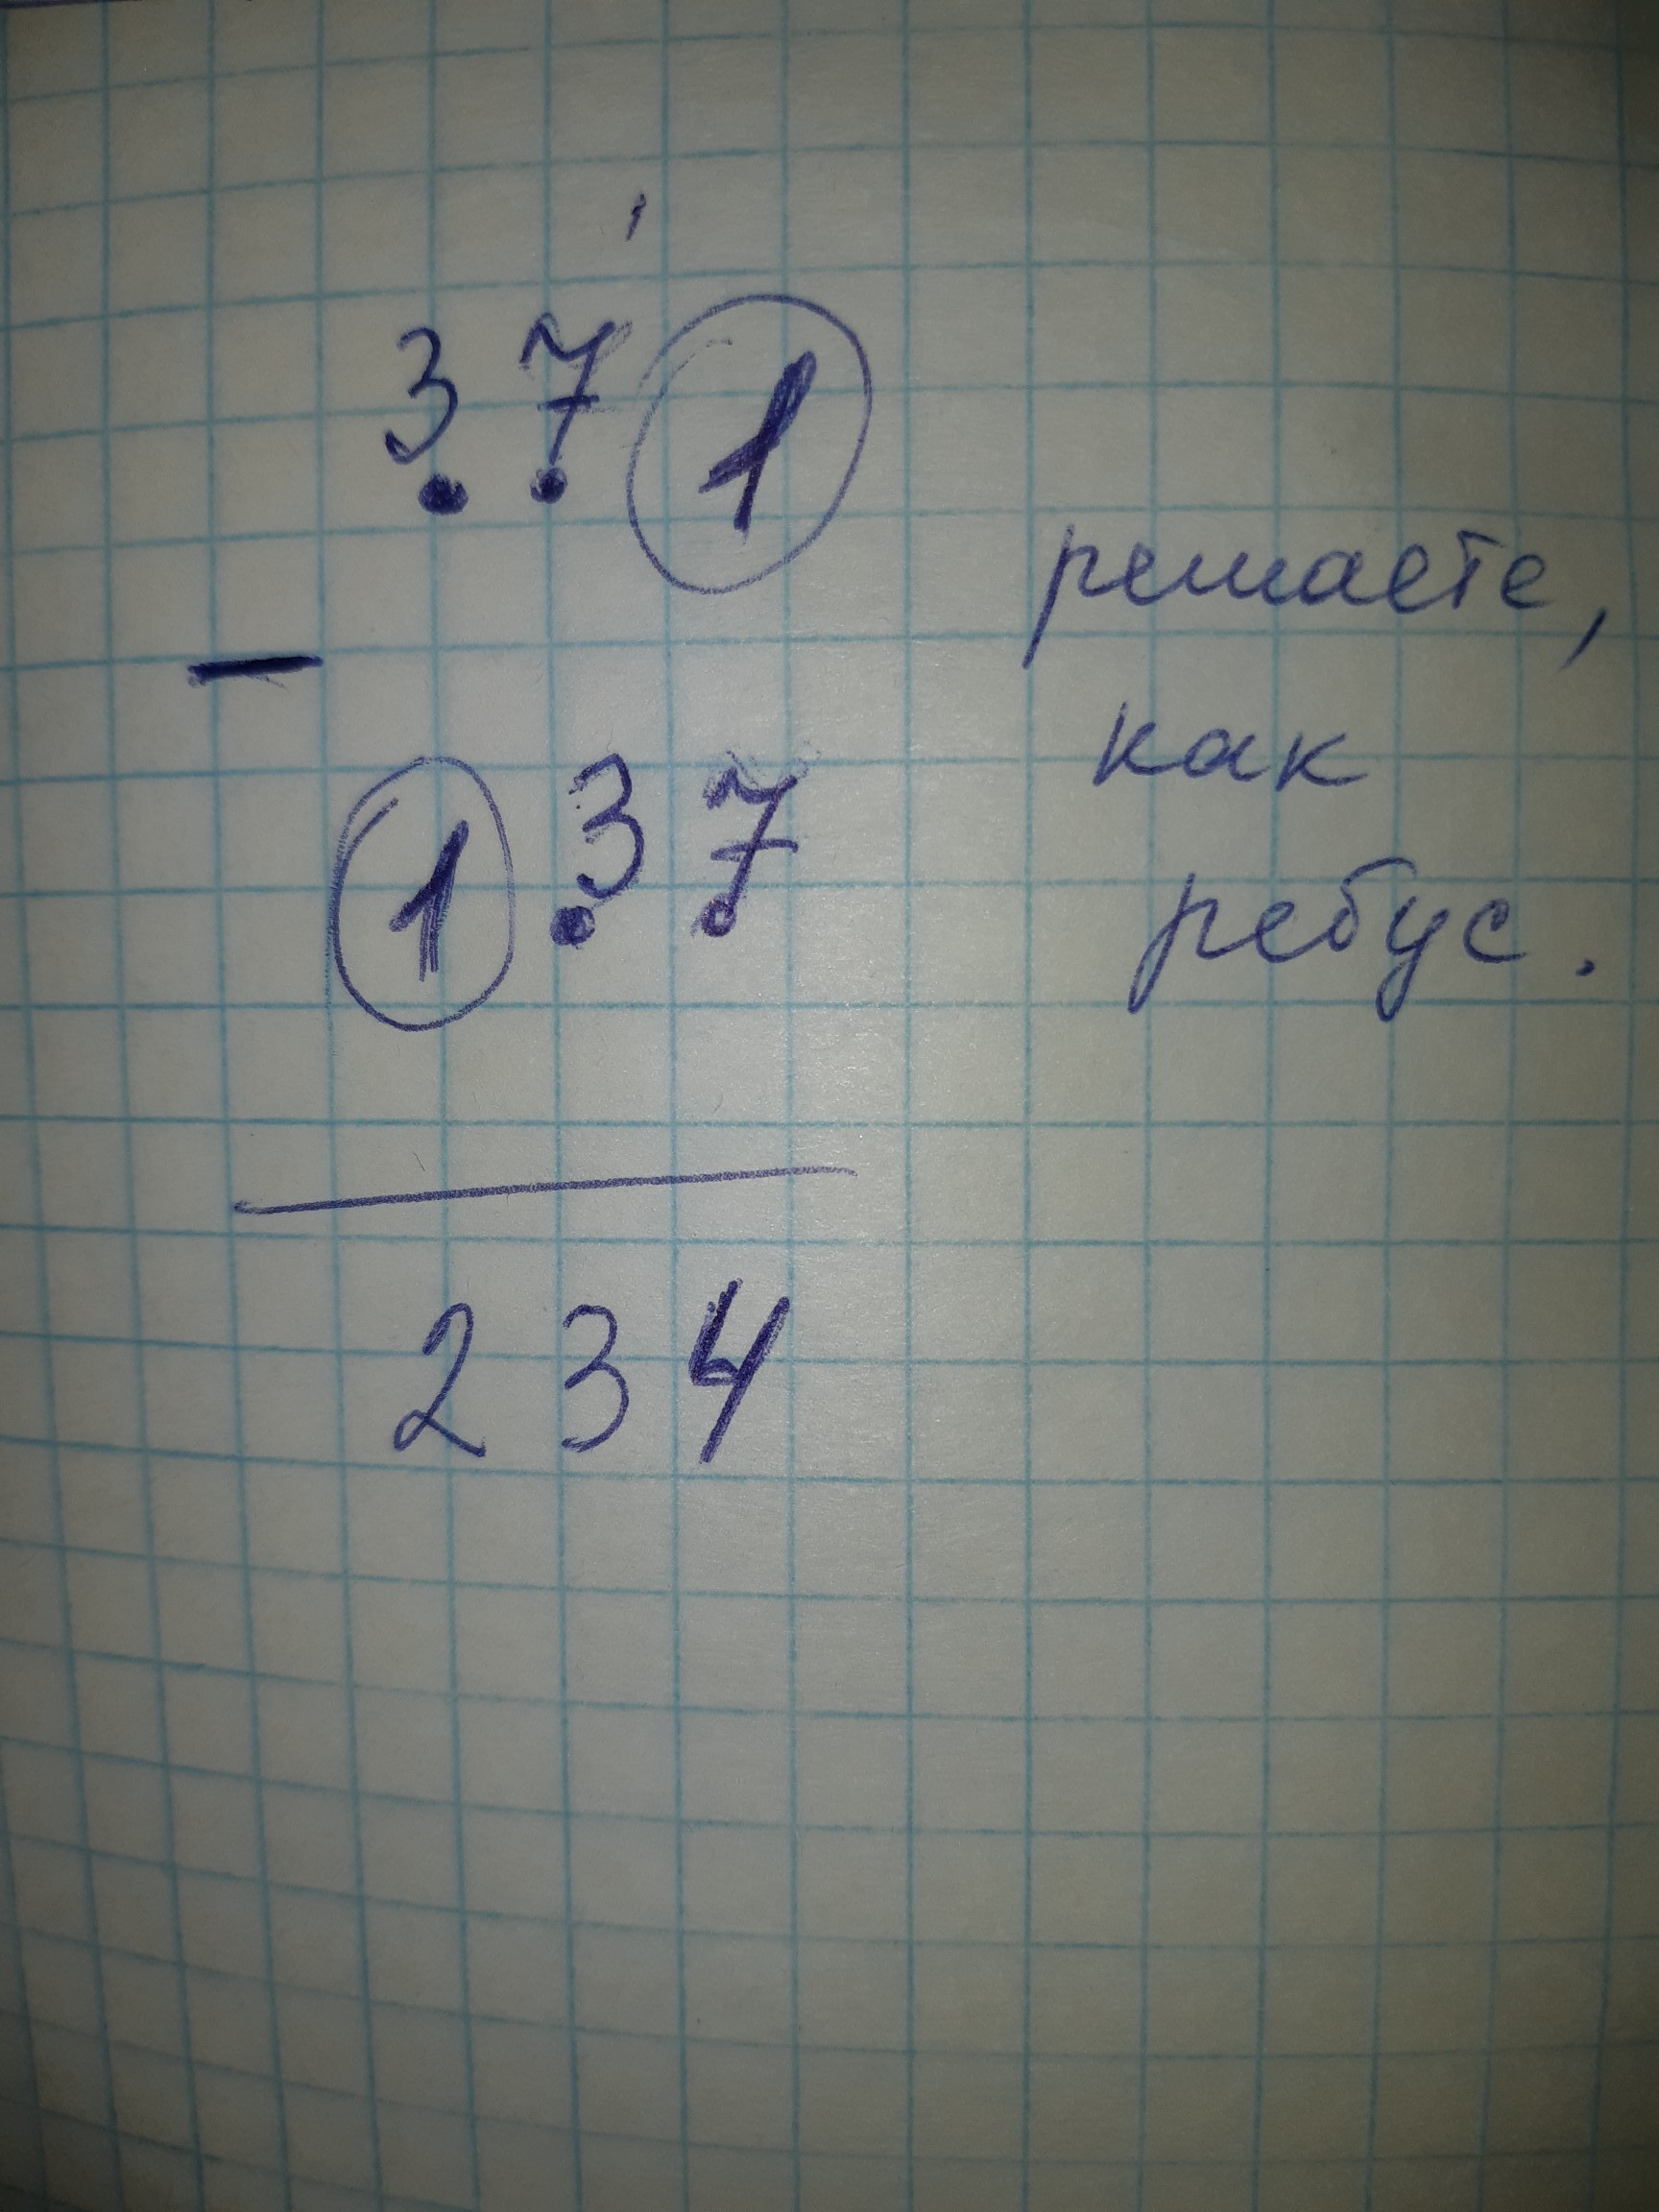 371
решаете,
−
как
137
ребус.
234